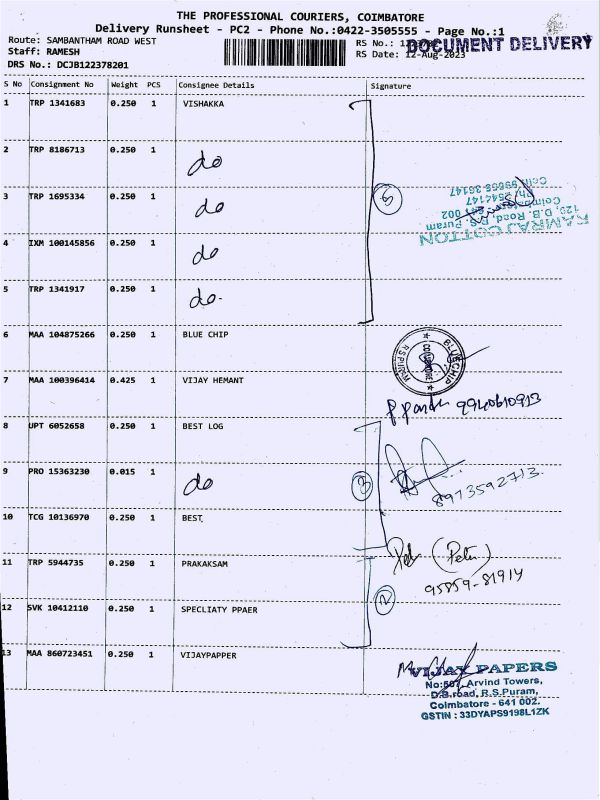 THE PROFESSIONAL COURIERS, COIMBATORE
Delivery Runsheet - PC2 - Phone No.:0422-3505555 - Page No.:1
Route: SAMBANTHAM ROAD WEST
RS No.:
DOCUMENT DELIVERY
Staff: RAMESH
RS Date: 12-Aug-2023
DRS No.: DCJB122378201
S No Consignment No Weight PCS Consignee Details Signature
1 TRP 1341683 0.250 1 VISHAKKA
2 TRP 8186713 0.250 1 do
3 TRP 1695334 0.250 1 do
4 IXM 100145856 0.250 1 do
5 TRP 1341917 0.250 1 do.
5
RAMRAJ COTTON
129, D.B. Road, R.S. Puram
Coimbatore 641 002
Ph: 2544147
6 MAA 104875266 0.250 1 BLUE CHIP
BLUECHIP
R S PURAM
7 MAA 100396414 0.425 1 VIJAY HEMANT
9940610913
8 UPT 6052658 0.250 1 BEST LOG
9 PRO 15363230 0.015 1 do
3
8973592713.
10 TCG 10136970 0.250 1 BEST.
11 TRP 5944735 0.250 1 PRAKAKSAM
(Peter)
95859-81914
12 SVK 10412110 0.250 1 SPECLIATY PPAER
2
13 MAA 860723451 0.250 1 VIJAYPAPPER
VIJAY PAPERS
Arvind Towers,
D.B.road, R.S.Puram,
Coimbatore - 641 002.
GSTIN : 33DYAPS9198L1ZK